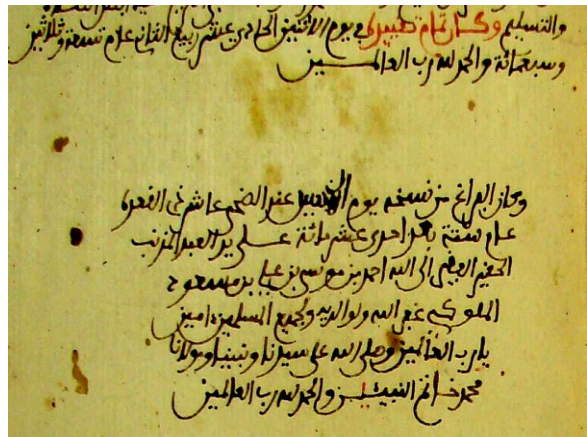 والتسليم وكان تمام تقييده في يوم الاثنين الحادي عشر ربيع الثاني عام تسعة وثلاثين
وسبعمائة والحمد لله رب العالمين
وكان الفراغ من نسخه يوم عند الضحى عاشر ذي القعدة
عام ستة بعد احدى عشر مائة على يد العبد المذنب
الحقير الفقير الى الله احمد بن موسى بن علي بن مسعود
غفر الله له ولوالديه ولجميع المسلمين امين
يا رب العالمين وصلى الله على سيدنا ونبينا ومولانا
محمد خاتم النبيئين والحمد لله رب العالمين